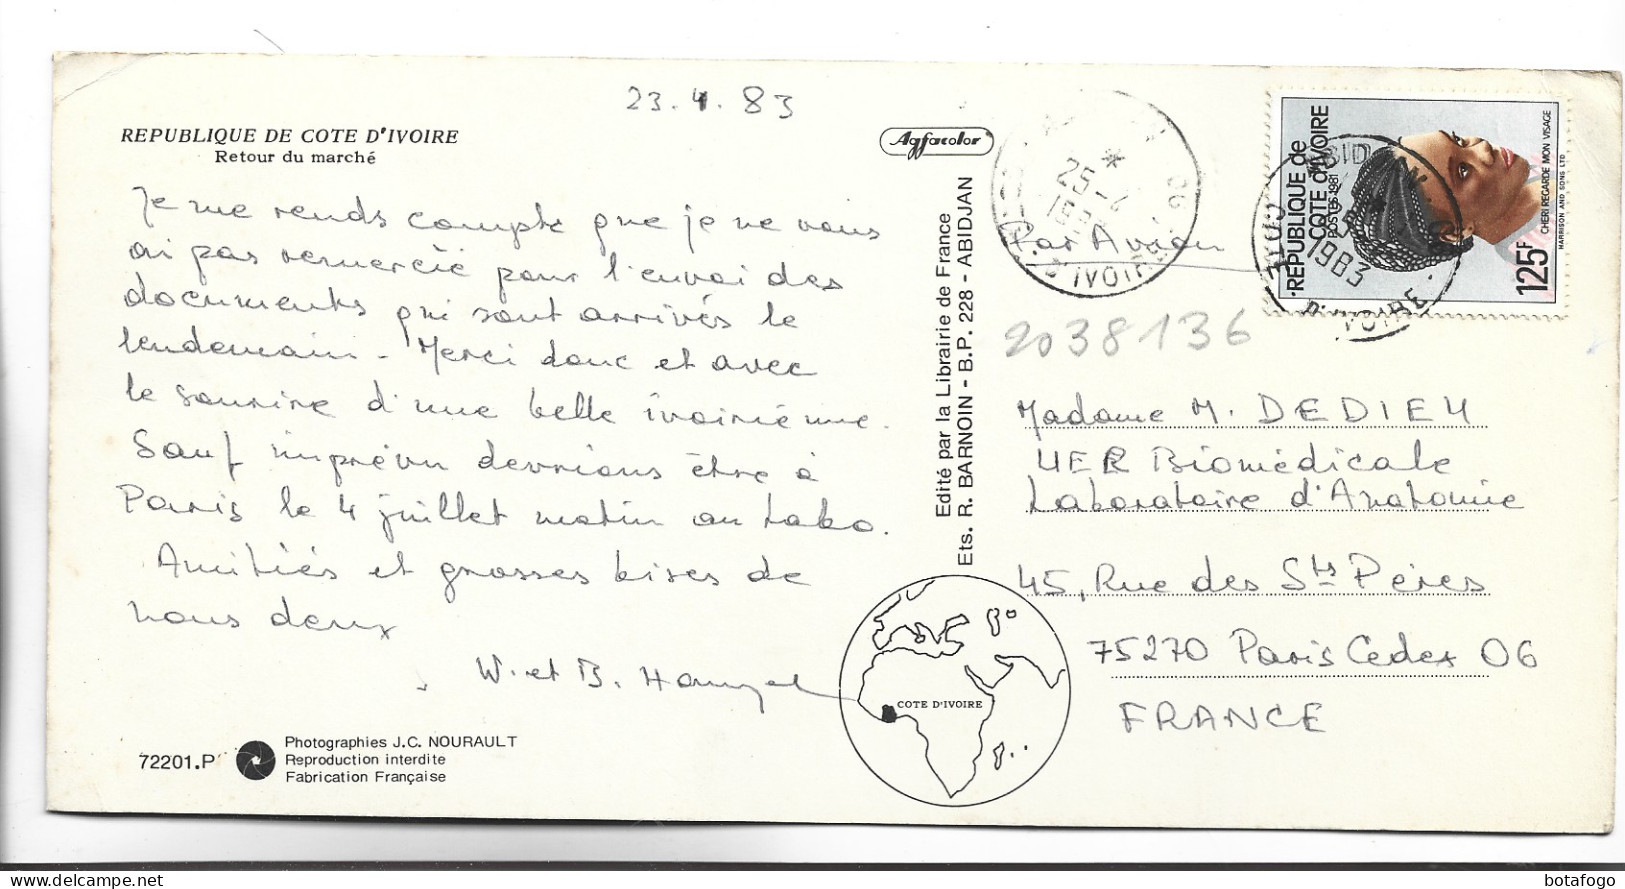 23.4.83
REPUBLIQUE DE COTE D'IVOIRE
Retour du marché
Je me rends compte que je ne vous
ai pas remercié pour l'envoi des
documents qui sont arrivés le
lendemain - Merci donc et avec
le sourire d'une belle ivoirienne.
Sauf imprévu devrions être à
Paris le 4 juillet matin au labo.
Amitiés et grosses bises de
nous deux
W. et B.
72201.P
Photographies J.C. NOURAULT
Reproduction interdite
Fabrication Française
Agfacolor
Edité par la Librairie de France
Ets. R. BARNOIN - B.P. 228 - ABIDJAN
COTE D'IVOIRE
Par Avion
25-4
D'IVOIRE
REPUBLIQUE de
COTE d'IVOIRE
POSTES 1981
125F
CHERI REGARDE MON VISAGE
HARRISON AND SONS LTD
1983
COTE D'IVOIRE
2038136
Madame M. DEDIEU
UER Biomédicale
Laboratoire d'Anatomie
45, Rue des Sts Pères
75270 Paris Cedex 06
FRANCE
botafogo